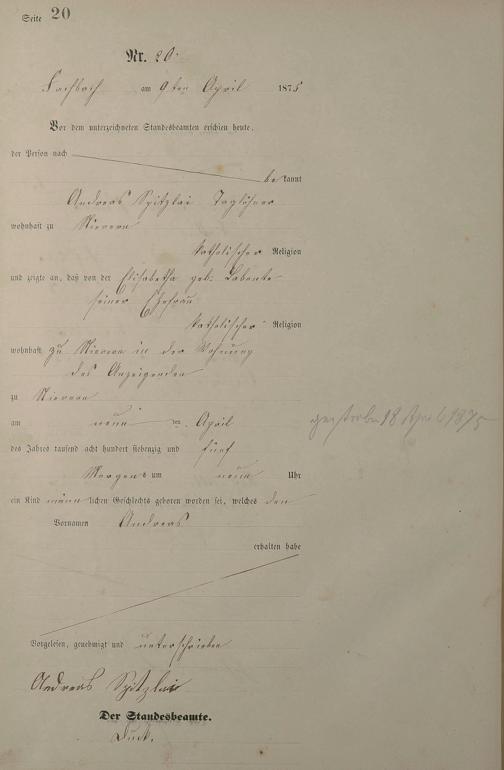 Seite 20
Nr. 20.
Fachbach am 9ten April 1875
Vor dem unterzeichneten Standesbeamten erschien heute,
der Person nach
be kannt
Andreas Spitzlai Taglöhner
wohnhaft zu Nievern
katholischer Religion
und zeigte an, daß von der Elisabetha geb. Labonte
seiner Ehefrau
katholischer Religion
wohnhaft zu Nievern in der Wohnung
des Anzeigenden
zu Nievern
am neun ten April
des Jahres tausend acht hundert siebenzig und fünf
Morgens um neun Uhr
ein Kind männ lichen Geschlechts geboren worden sei, welches den
Vornamen Andreas
erhalten habe
gestorben 18 April 1875
Vorgelesen, genehmigt und unterschrieben
Andreas Spitzlai
Der Standesbeamte.